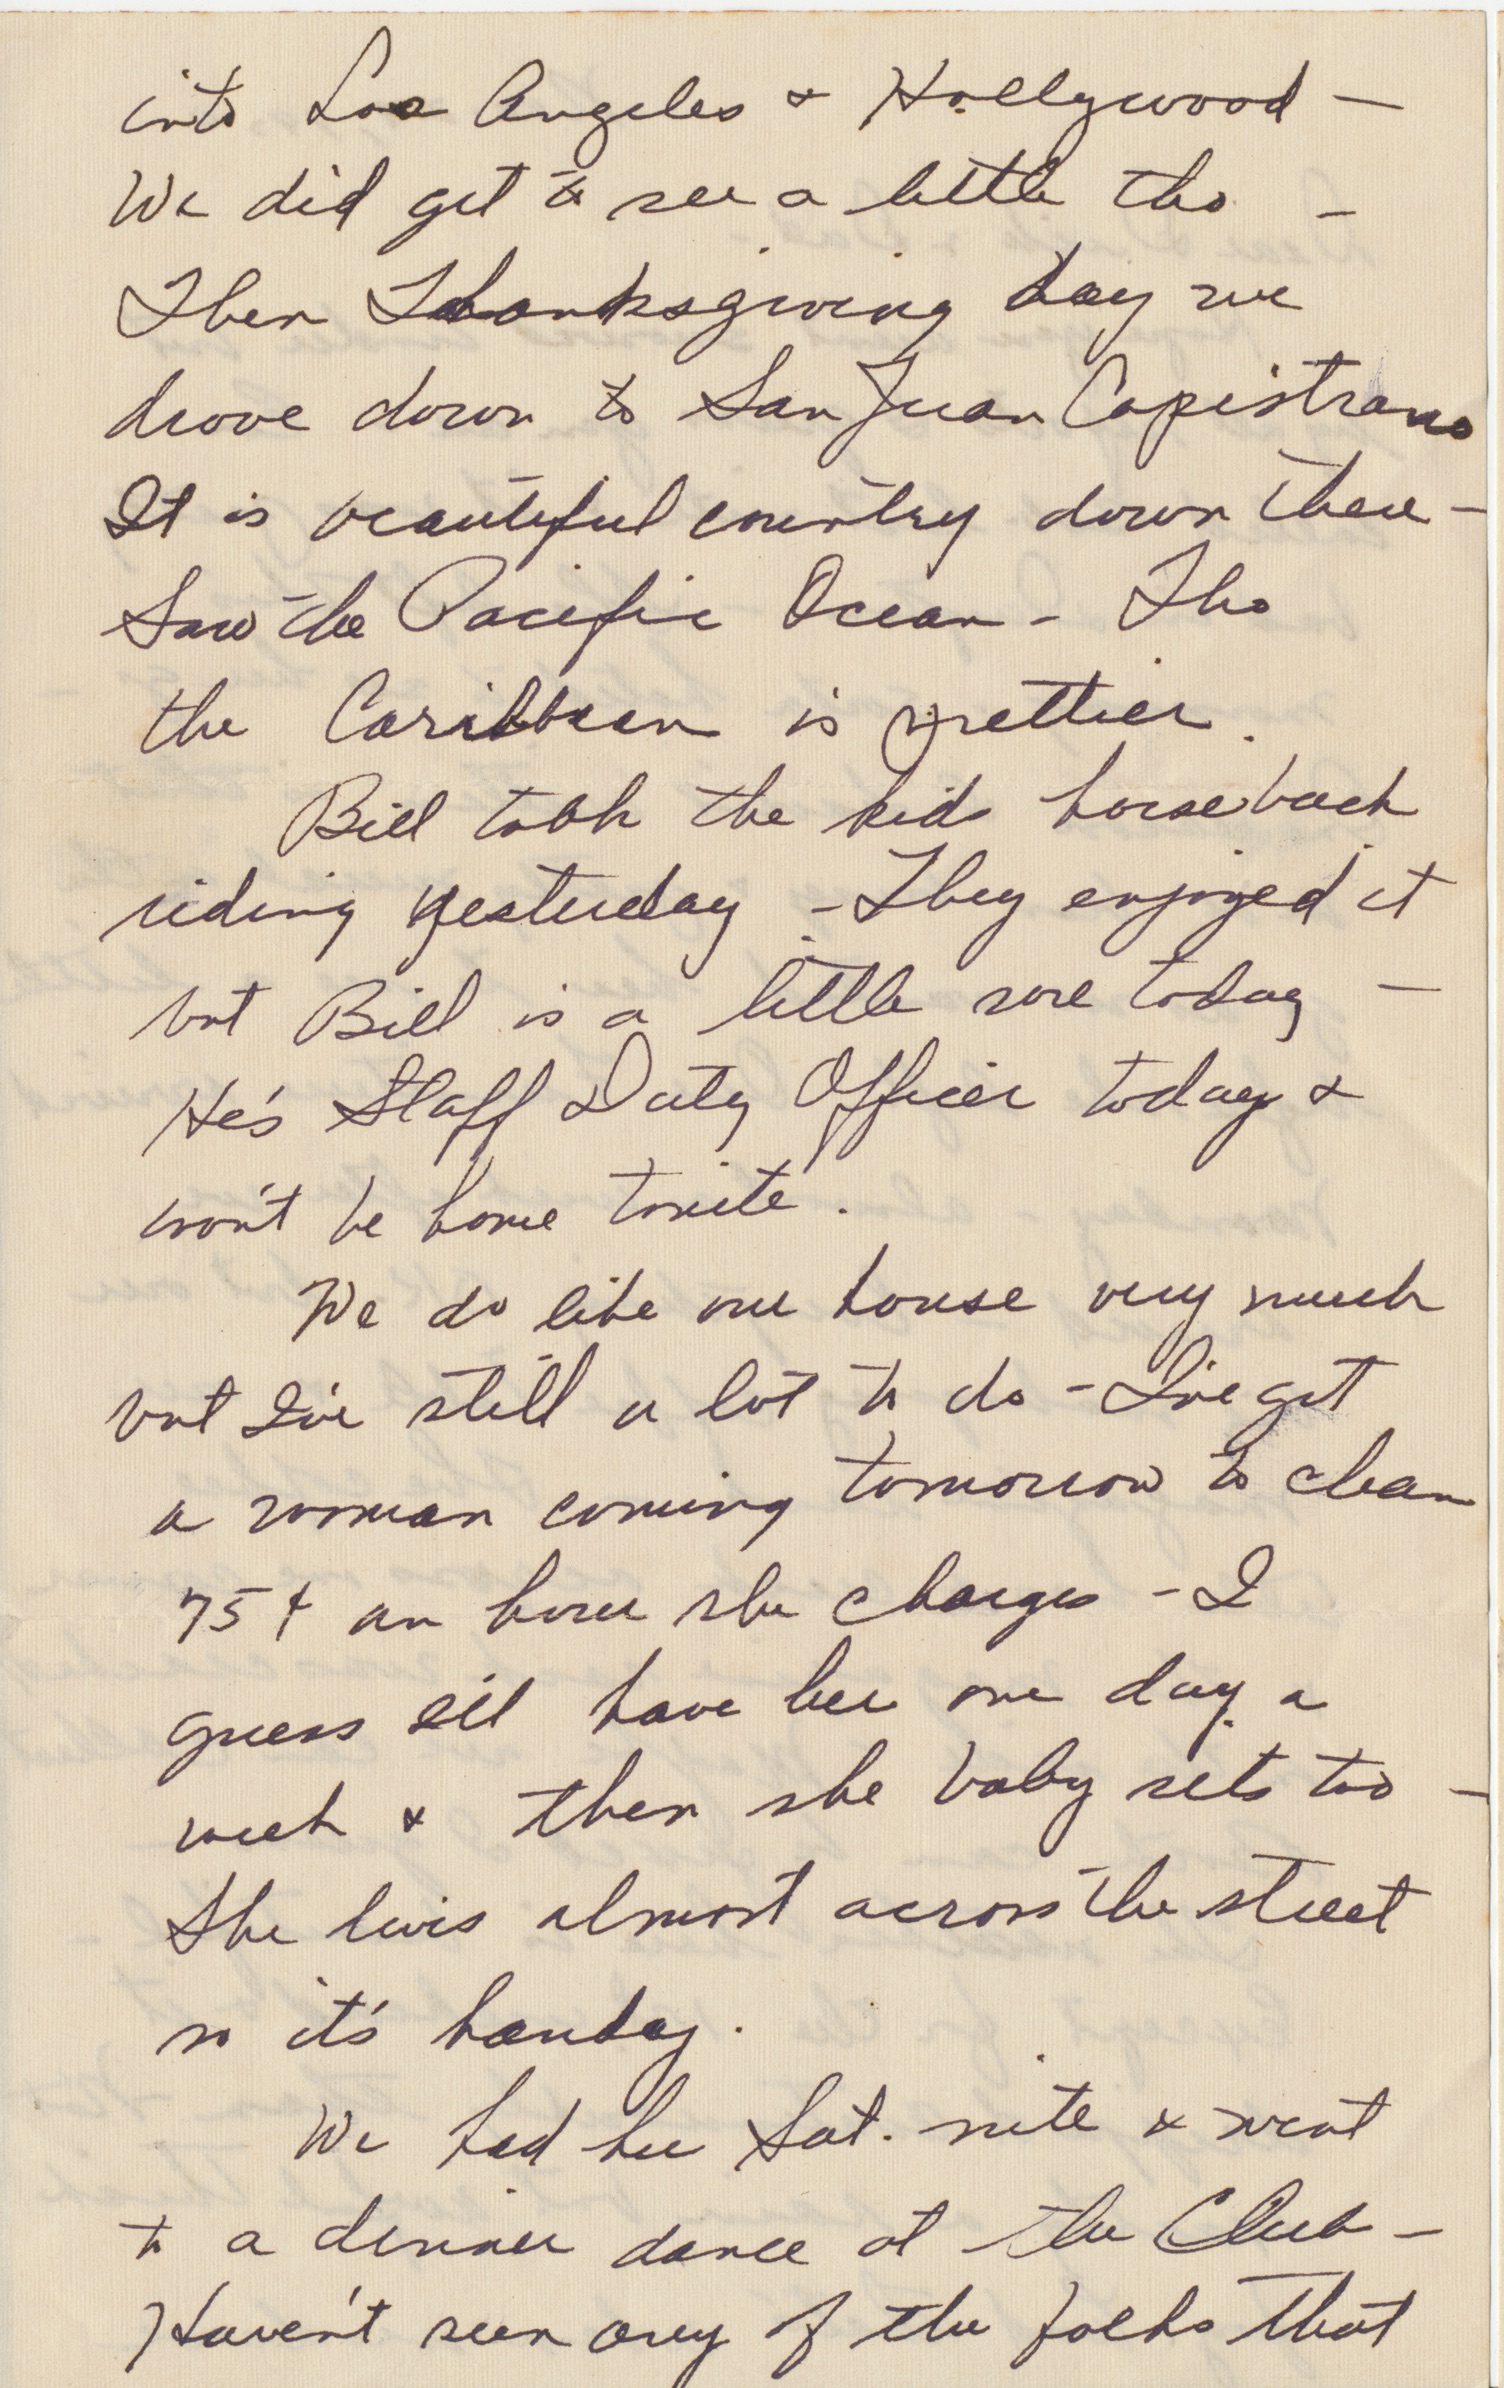 into Los Angeles & Hollywood —
We did get to see a little tho —
Then Thanksgiving day we
drove down to San Juan Capistrano
It is beautiful country down there —
Saw the Pacific Ocean - Tho
the Caribbean is prettier.
Bill took the kids horseback
riding yesterday - They enjoyed it
but Bill is a little sore today —
He's Staff Duty Officer today &
won't be home tonite.
We do like our house very much
but I've still a lot to do - I've got
a woman coming tomorrow to clean
75¢ an hour she charges - I
guess I'll have her one day a
week & then she baby sets too —
She lives almost across the street
so it's handy.
We had her Sat. nite & went
to a dinner dance at the Club —
Haven't seen any of the folks that